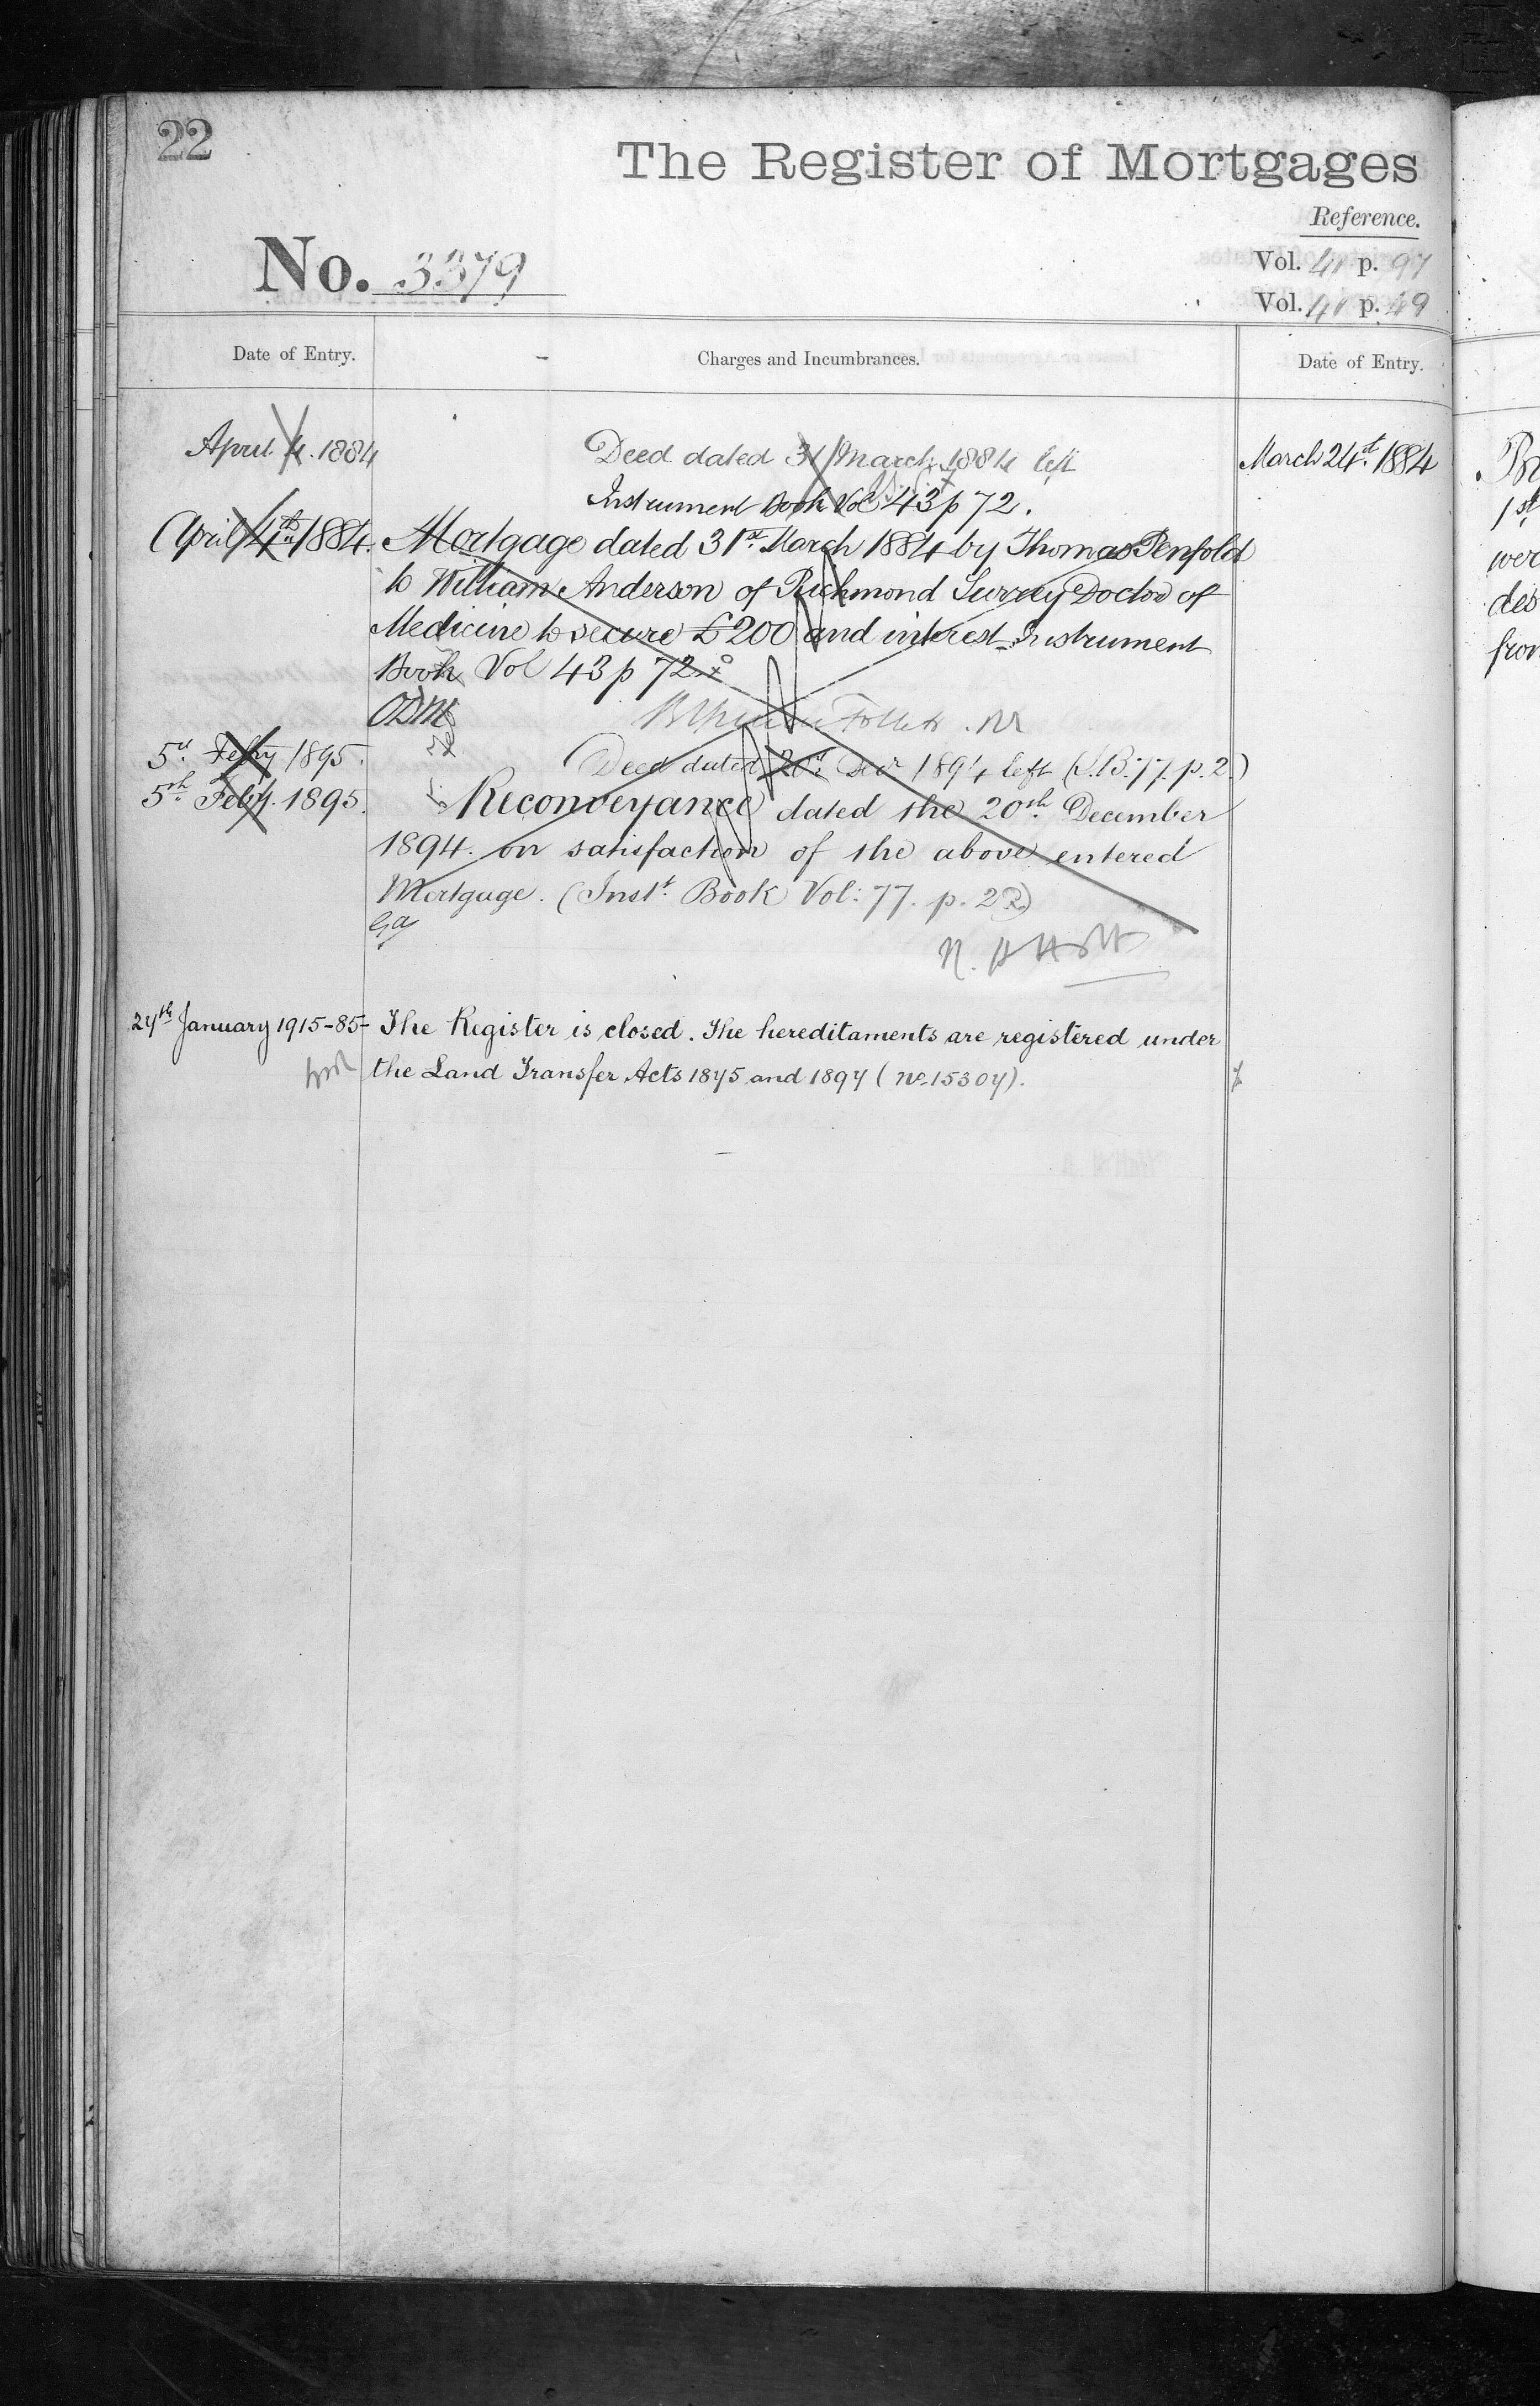 22
The Register of Mortgages
Reference.
No. 3379
Vol. 41 p. 97
Vol. 41 p. 49
Date of Entry.
Charges and Incumbrances.
Date of Entry.
April 4. 1884
Deed dated 31 March 1884 left
March 24th. 1884
Instrument Book Vol 43 p 72.
April 4th 1884.
Mortgage dated 31st. March 1884 by Thomas Penfold
to William Anderson of Richmond Surrey Doctor of
Medicine to secure £200 and interest Instrument
Book Vol 43 p 72.
ODM
5th Feby 1895.
Deed dated 20th Decr 1894 left (I.B. 77. p. 2.)
5th. Feby. 1895.
Reconveyance dated the 20th. December
1894. on satisfaction of the above entered
Mortgage. (Inst. Book Vol: 77. p. 2)
27th January 1915-85-
The Register is closed. The hereditaments are registered under
the Land Transfer Acts 1875 and 1897 (No. 15307).
1st
wer
des
from